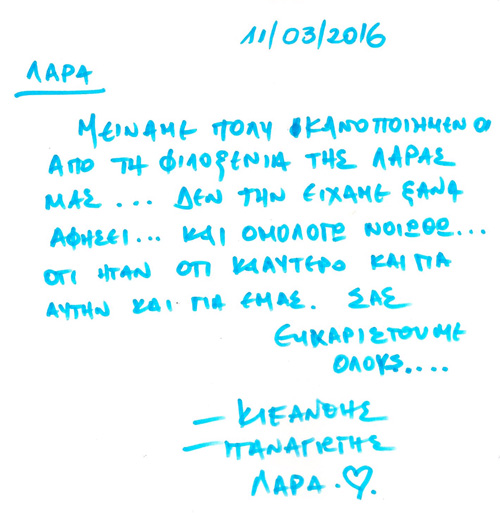 11/03/2016
ΛΑΡΑ
ΜΕΙΝΑΜΕ ΠΟΛΥ ΙΚΑΝΟΠΟΙΗΜΕΝΟΙ
ΑΠΟ ΤΗ ΦΙΛΟΞΕΝΙΑ ΤΗΣ ΛΑΡΑΣ
ΜΑΣ... ΔΕΝ ΤΗΝ ΕΙΧΑΜΕ ΞΑΝΑ
ΑΦΗΣΕΙ... ΚΑΙ ΟΜΟΛΟΓΩ ΝΟΙΩΘΩ...
ΟΤΙ ΗΤΑΝ ΟΤΙ ΚΑΛΥΤΕΡΟ ΚΑΙ ΓΙΑ
ΑΥΤΗΝ ΚΑΙ ΓΙΑ ΕΜΑΣ. ΣΑΣ
ΕΥΧΑΡΙΣΤΟΥΜΕ
ΟΛΟΥΣ....
— ΚΛΕΑΝΘΗΣ
— ΠΑΝΑΓΙΩΤΗΣ
ΛΑΡΑ.♡.